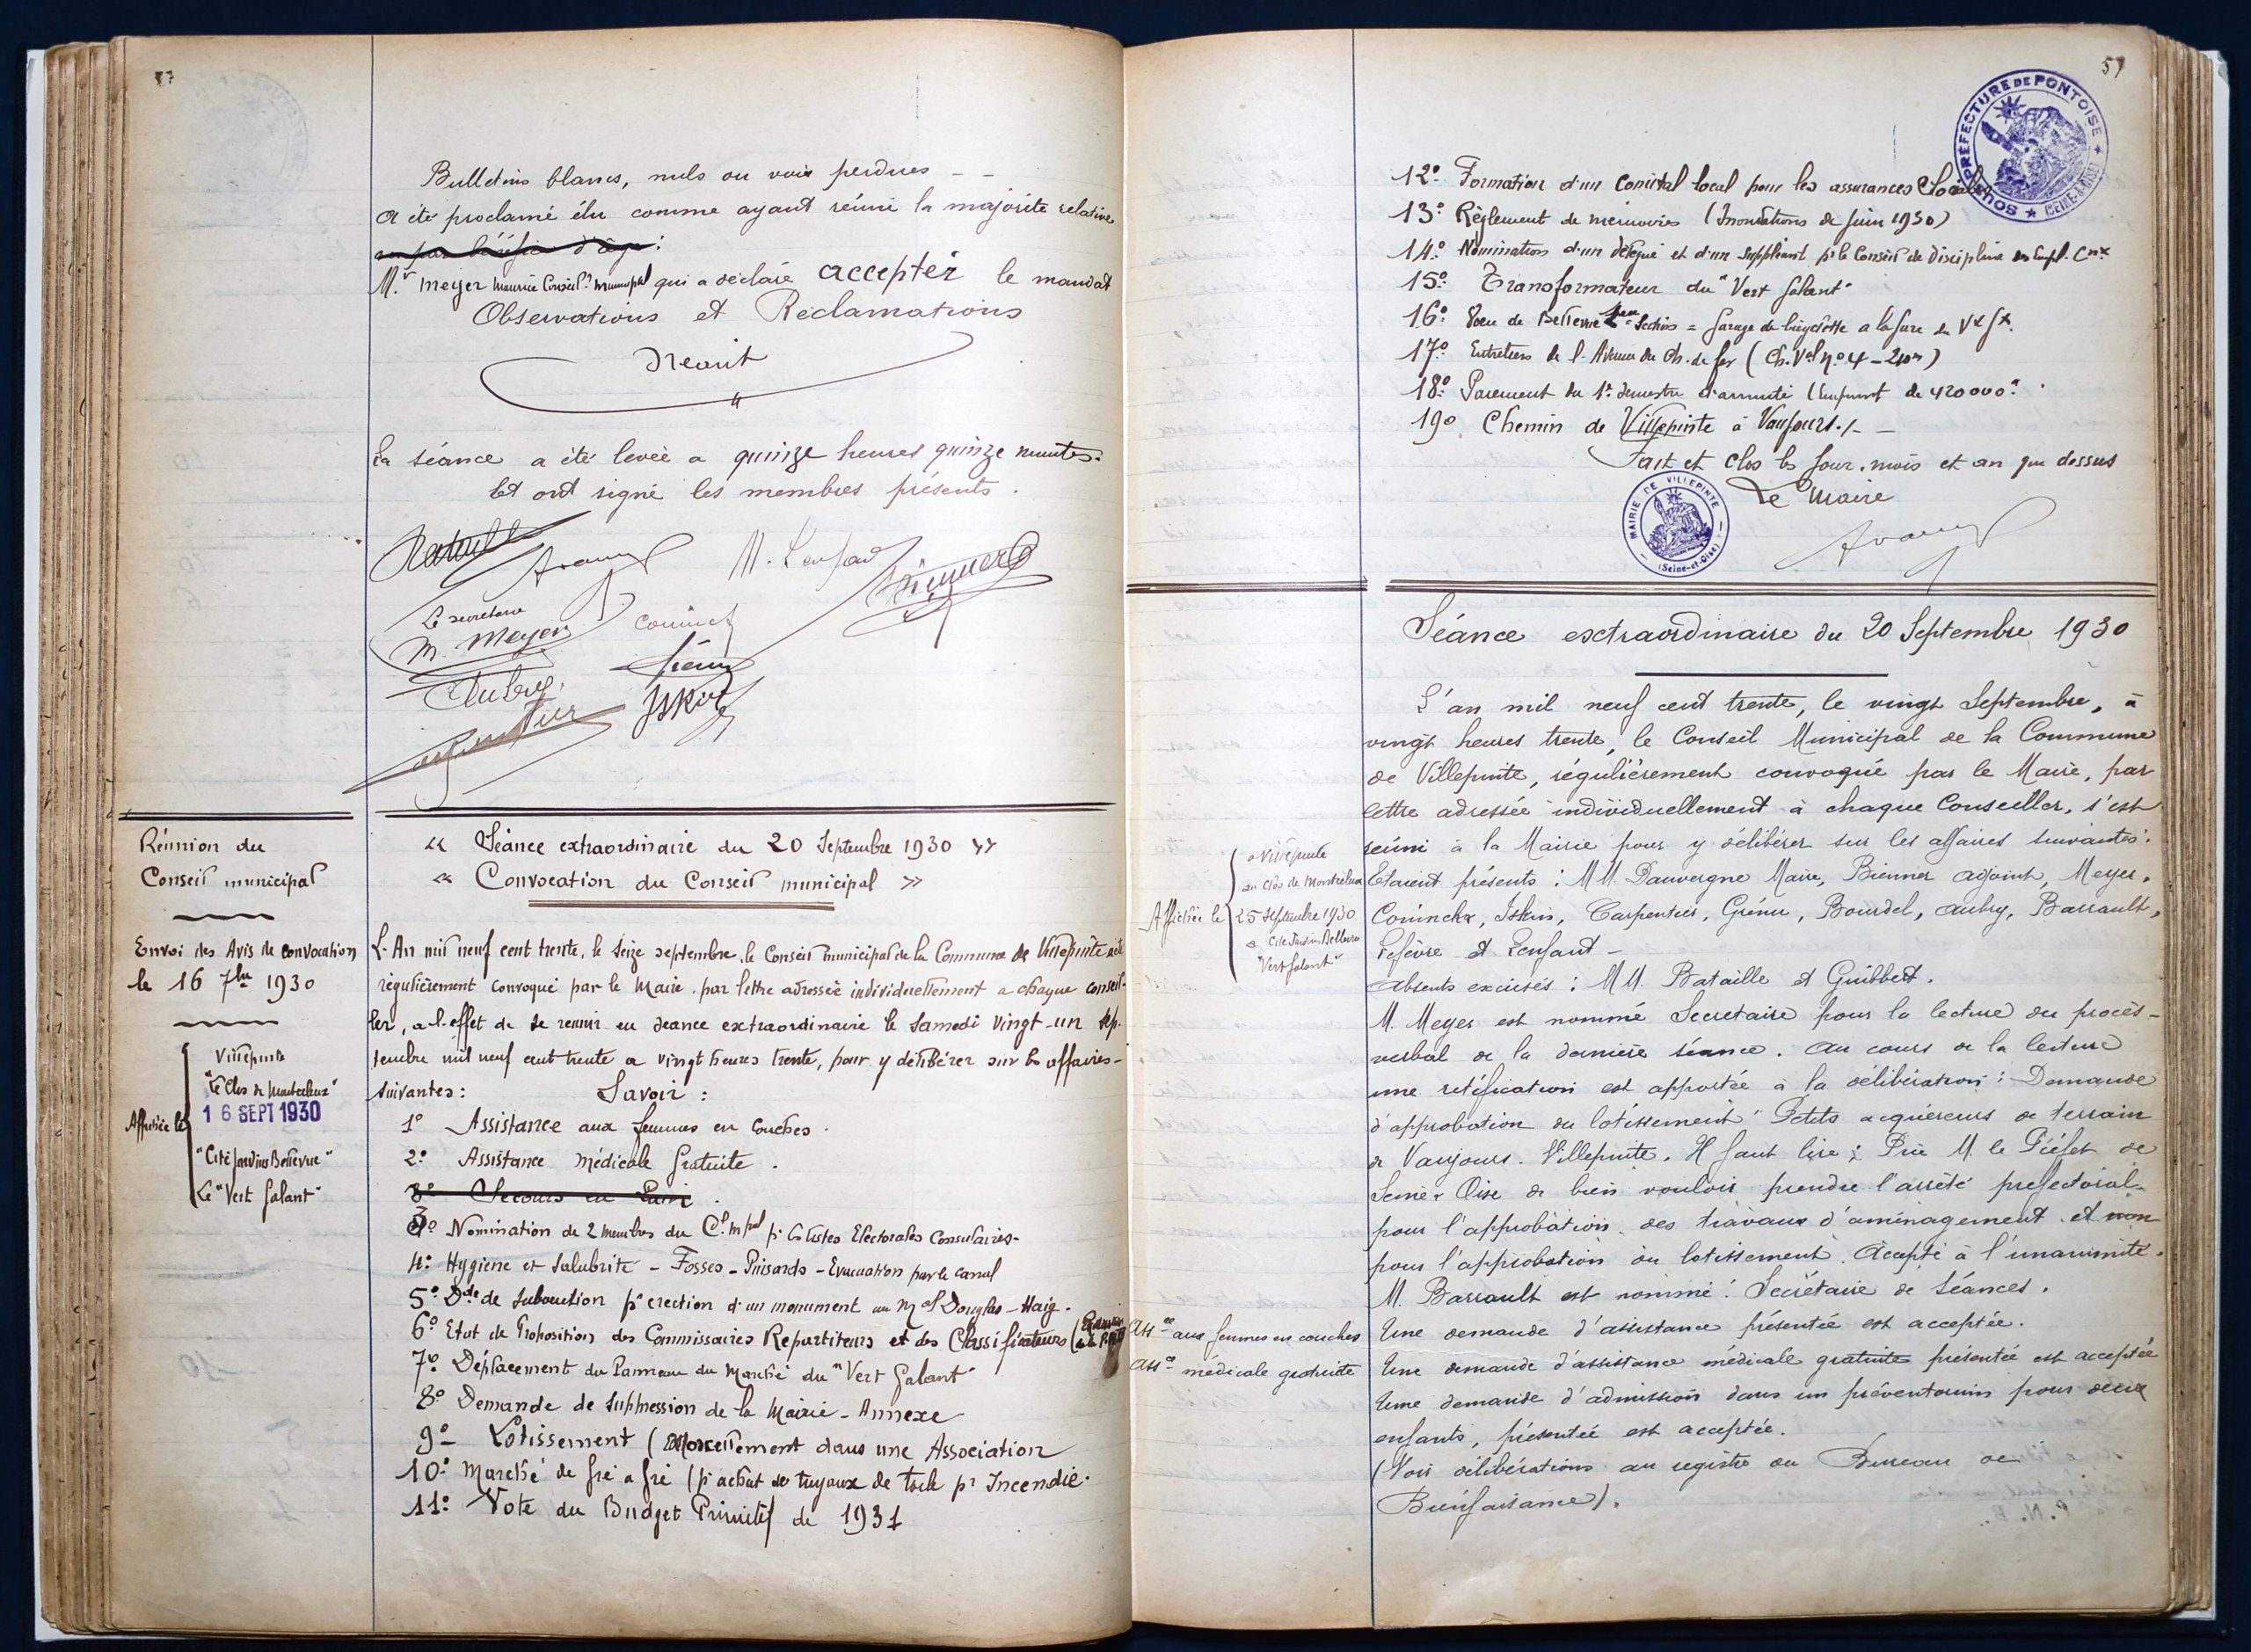 Bulletins blancs, nuls ou voix perdues - -
a été proclamé élu comme ayant réuni la majorité relative
ou par bénéfice d'âge :
M.r Meyer Maurice Conseil.r Municipal qui a déclaré accepter le mandat
Observations et Réclamations
Néant
La séance a été levée a quinze heures quinze minutes.
Et ont signé les membres présents.
Le secrétaire
M. Meyer
Aubry
Iskin
Réunion du
Conseil municipal
Envoi des Avis de convocation
le 16 7bre 1930
Affichée le
Villepinte
"Le Clos de Montceleux"
16 SEPT 1930
"Cité Jardins Bellevue"
Le "Vert Galant"
« Séance extraordinaire du 20 Septembre 1930 »
« Convocation du Conseil municipal »
L'An mil neuf cent trente, le seize septembre, le Conseil municipal de la Commune de Villepinte a été
régulièrement convoqué par le Maire, par lettre adressée individuellement a chaque conseil-
ler, a l'effet de se réunir en séance extraordinaire le Samedi vingt-un sep-
tembre mil neuf cent trente a vingt heures trente, pour y délibérer sur les affaires-
suivantes :
Savoir :
1° Assistance aux femmes en couches.
2° Assistance Médicale Gratuite.
3° Secours en Pain.
3° Nomination de 2 membres du Cl. mpal pr listes Electorales Consulaires-
4° Hygiène et Salubrité - Fosses - Puisards - Evacuation par le canal
5° Dde de subvention pr érection d'un monument au Mal Douglas-Haig.
6° Etat de Proposition des Commissaires Répartiteurs et des Classificateurs
7° Déplacement du Panneau du Marché du "Vert Galant"
8° Demande de suppression de la Mairie-Annexe
9° - Lotissement (Morcellement dans une Association
10° Marché de gré a gré (pr achat de tuyaux de toile pr Incendie.
11° Vote du Budget Primitif de 1931
SOUS-PRÉFECTURE DE PONTOISE
SEINE-&-OISE
12° Formation d'un Comital local pour les assurances Sociales
13° Règlement de mémoires (Inondations de Juin 1930)
14° Nomination d'un délégué et d'un suppléant pr le Conseil de discipline des Empl. Cnx
15° Transformateur du "Vert Galant"
16° Voeu de Bellevue Section = Garage de bicyclette a la gare du Vt Gt.
17° Entretien de l'Avenue du Ch. de fer (Ch. Val N° 4 -
18° Paiement du 1r semestre d'annuité (Emprunt de 420000
19° Chemin de Villepinte à Vaujours./-
Fait et clos les jour, mois et an que dessus
Le Maire
MAIRIE DE VILLEPINTE
(Seine-et-Oise)
Séance extraordinaire du 20 Septembre 1930
Affichée le
a Villepinte
au Clos de Montceleux
25 Septembre 1930
a Cité Jardins Bellevue
"Vert Galant"
L'an mil neuf cent trente, le vingt Septembre, à
vingt heures trente, le Conseil Municipal de la Commune
de Villepinte, régulièrement convoqué par le Maire, par
lettre adressée individuellement à chaque Conseiller, s'est
réuni à la Mairie pour y délibérer sur les affaires suivantes :
Etaient présents : MM. Dauvergne Maire, Bienner adjoint, Meyer,
Couinckx, Iskin, Carpentier, Grénu, Bourdel, Aubry, Barrault,
Lefèvre et Lenfant -
Absents excusés : MM. Bataille et Guibbert.
M. Meyer est nommé Secrétaire pour la lecture du procès-
verbal de la dernière séance. Au cours de la lecture
une retification est apportée à la délibération : Demande
d'approbation du lotissement "Petits acquéreurs de terrain
de Vaujours. Villepinte. Il faut lire : Prie M. le Préfet de
Seine & Oise de bien vouloir prendre l'arrêté préfectoral
pour l'approbation des travaux d'aménagement et non
pour l'approbation du lotissement. Accepté à l'unanimité.
M. Barrault est nommé : Secrétaire de séances.
Assce aux femmes en couches
Une demande d'assistance présentée est acceptée.
Assce médicale gratuite
Une demande d'assistance médicale gratuite présentée est acceptée
Une demande d'admission dans un préventorium pour deux
enfants, présentée est acceptée.
(Voir délibérations au registre du Bureau de
Bienfaisance).